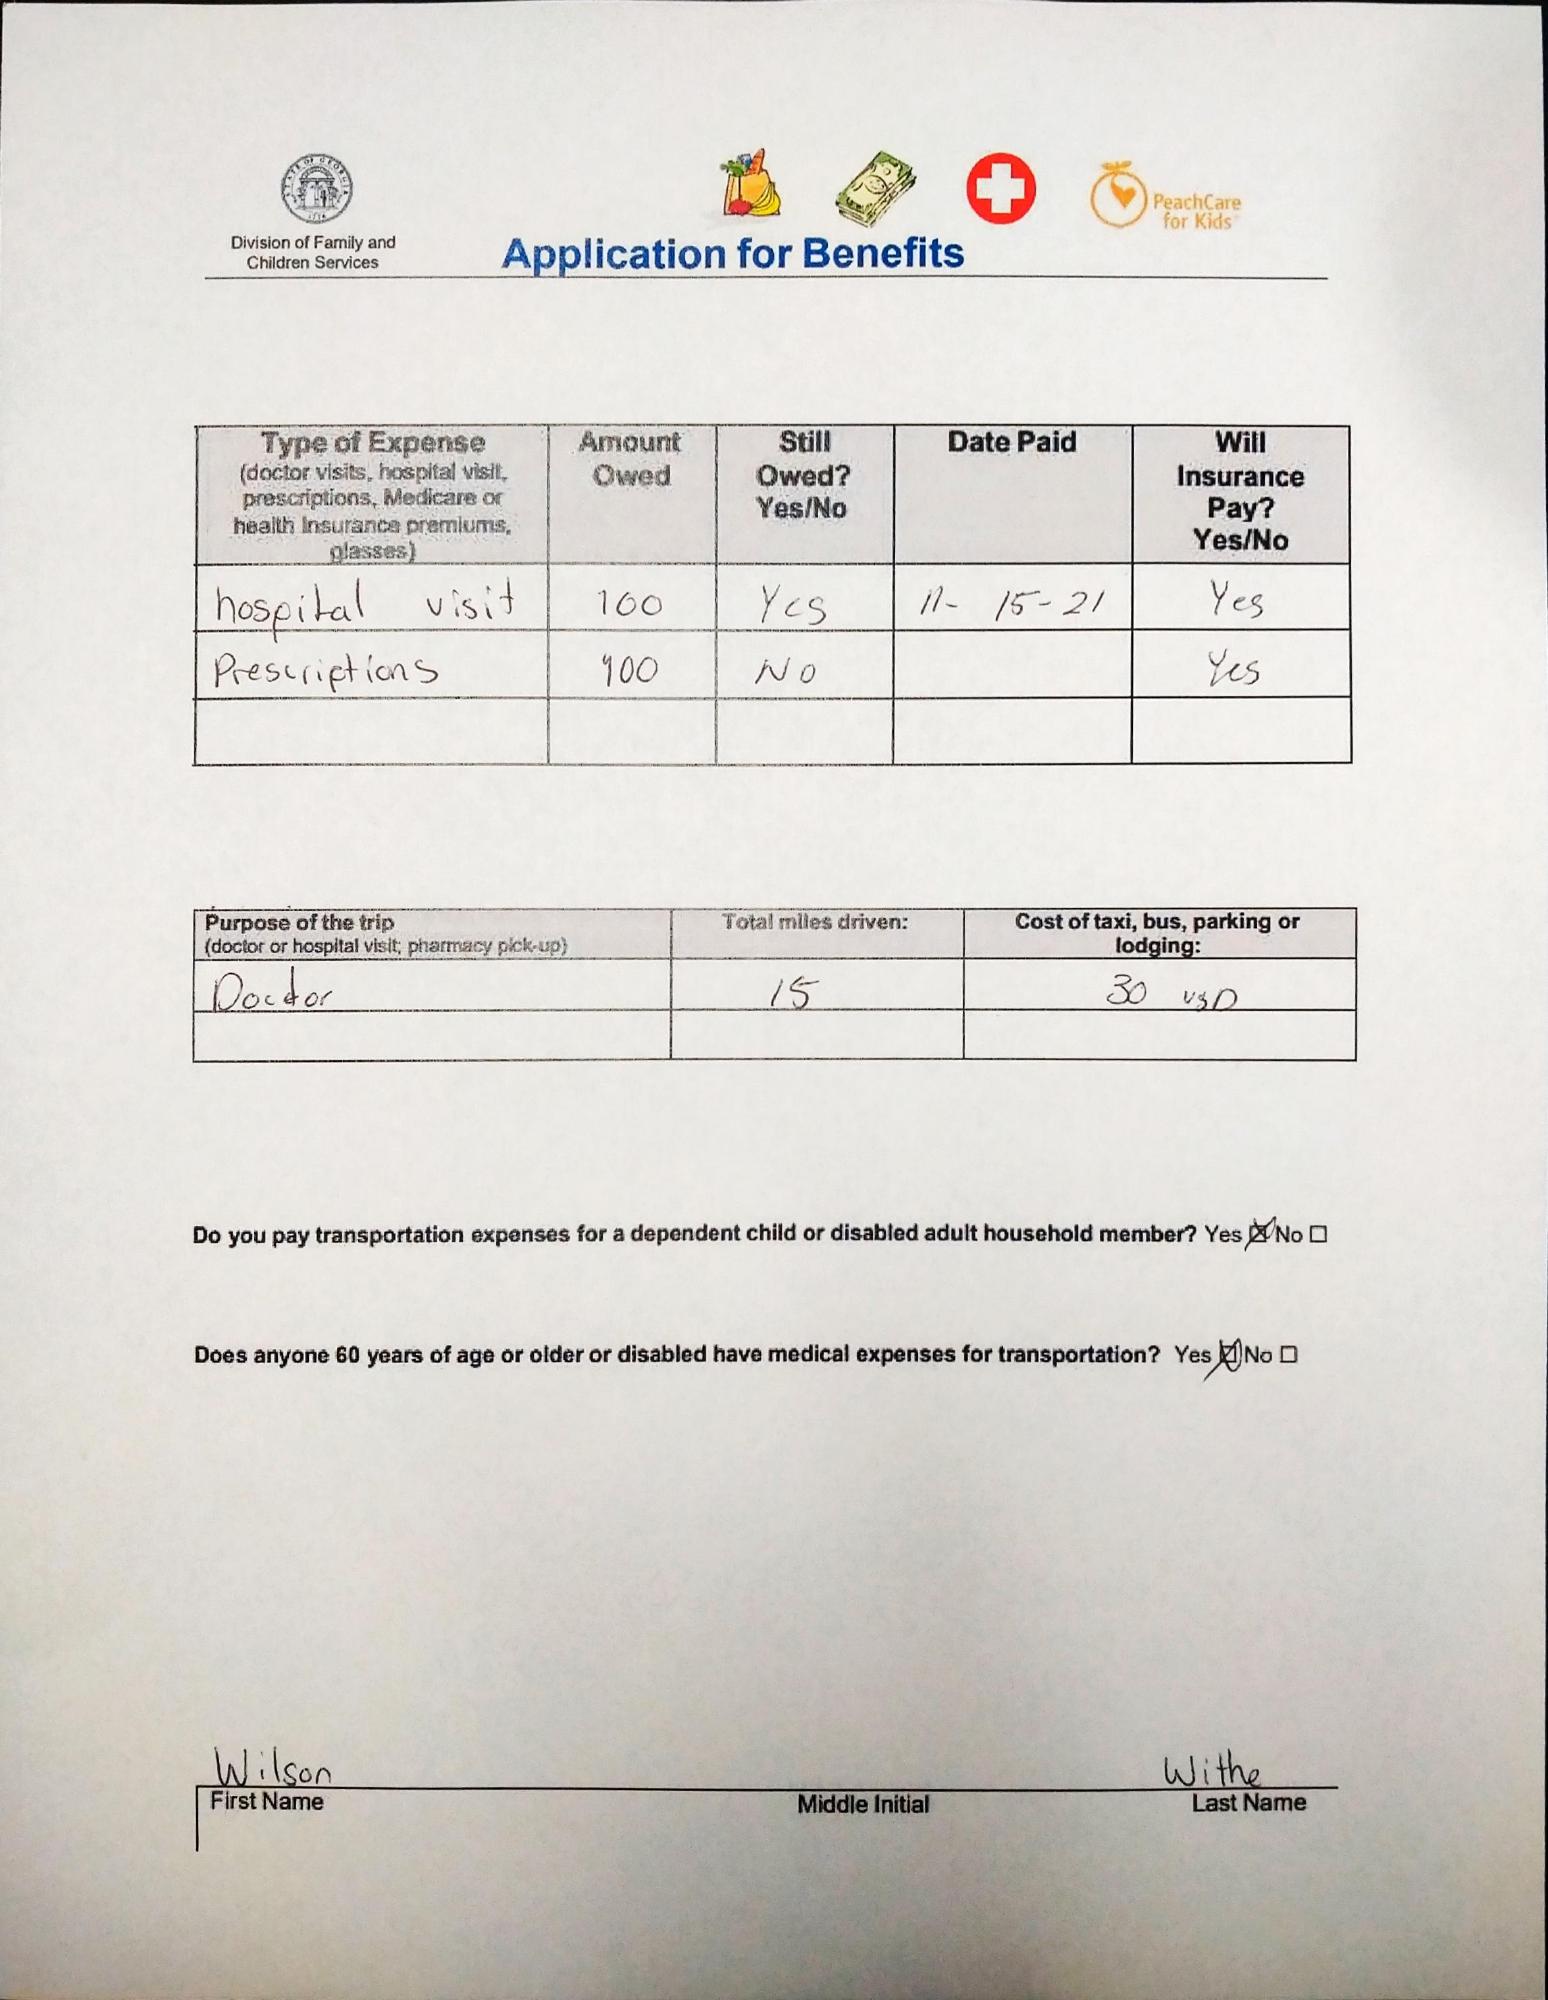 STATE OF GEORGIA
1776
Division of Family and
Children Services
Application for Benefits
PeachCare
for Kids
Type of Expense
(doctor visits, hospital visit,
prescriptions, Medicare or
health insurance premiums,
glasses)
Amount
Owed
Still
Owed?
Yes/No
Date Paid
Will
Insurance
Pay?
Yes/No
hospital visit 100 Yes 11- 15-21 Yes
Prescriptions NO Yes
Purpose of the trip
(doctor or hospital visit; pharmacy pick-up)
Total miles driven:
Cost of taxi, bus, parking or
lodging:
Doctor 15 30 USD
Do you pay transportation expenses for a dependent child or disabled adult household member? Yes ☒ No ☐
Does anyone 60 years of age or older or disabled have medical expenses for transportation? Yes ☒ No ☐
Wilson Withe
First Name Middle Initial Last Name